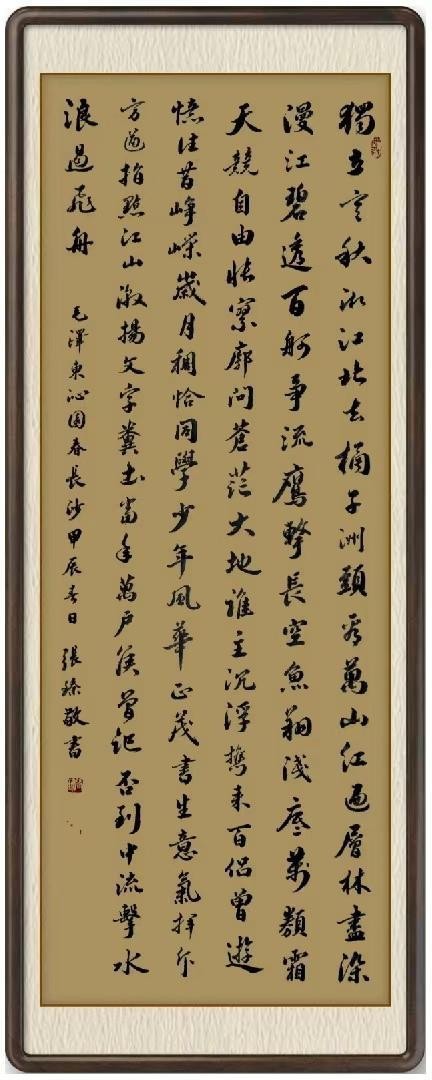 獨立寒秋湘江北去橘子洲頭看萬山紅遍層林盡染
漫江碧透百舸爭流鷹擊長空魚翔淺底萬類霜
天競自由悵寥廓問蒼茫大地誰主沉浮攜來百侶曾遊
憶往昔崢嶸歲月稠恰同學少年風華正茂書生意氣揮斥
方遒指點江山激揚文字糞土當年萬戶侯曾記否到中流擊水
浪遏飛舟
毛澤東沁園春長沙甲辰春日 張敬書